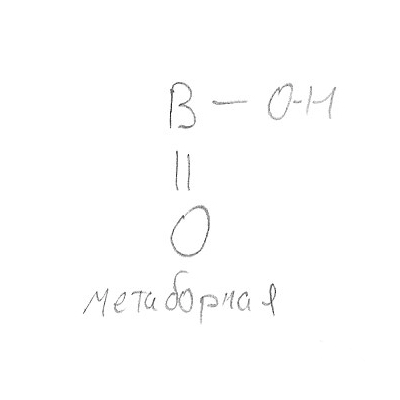 B – O-H
||
O
метаборная